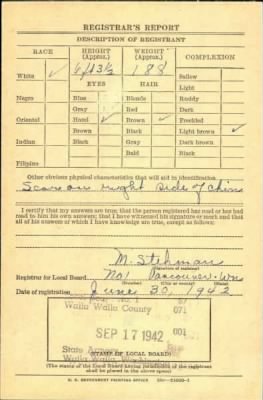 REGISTRAR'S REPORT
DESCRIPTION OF REGISTRANT
RACE HEIGHT (Approx.) WEIGHT (Approx.) COMPLEXION
White ✓ 188 Sallow
EYES HAIR Light
Negro Blue Blonde Ruddy
Gray Red Dark
Oriental Hazel ✓ Brown ✓ Freckled
Brown Black Light brown ✓
Indian Black Gray Dark brown
Bald Black
Filipino
Other obvious physical characteristics that will aid in identification
Scar on right side of chin
I certify that my answers are true; that the person registered has read or has had read to him his own answers; that I have witnessed his signature or mark and that all of his answers of which I have knowledge are true, except as follows:
M. Stehman
Registrar for Local Board No 1 Vancouver Wn
Date of registration June 30, 1942
Walla Walla County 071
SEP 17 1942 001
(STAMP OF LOCAL BOARD)
(The stamp of the Local Board having jurisdiction of the registrant shall be placed in the above space)
U. S. GOVERNMENT PRINTING OFFICE